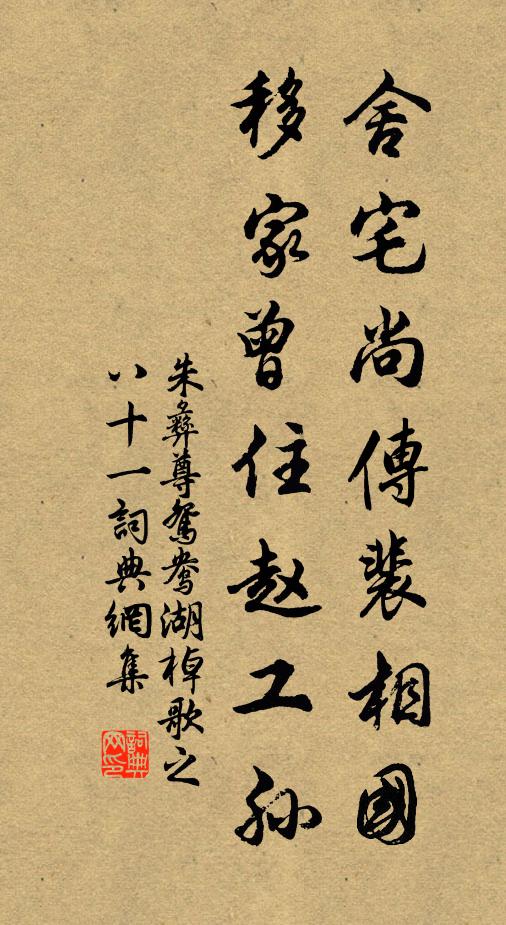 舍宅尚傳裴相國
移家曾住赵工孙
朱彝尊鴛鴦湖棹歌之
八十一詞典網集
詞典
网印